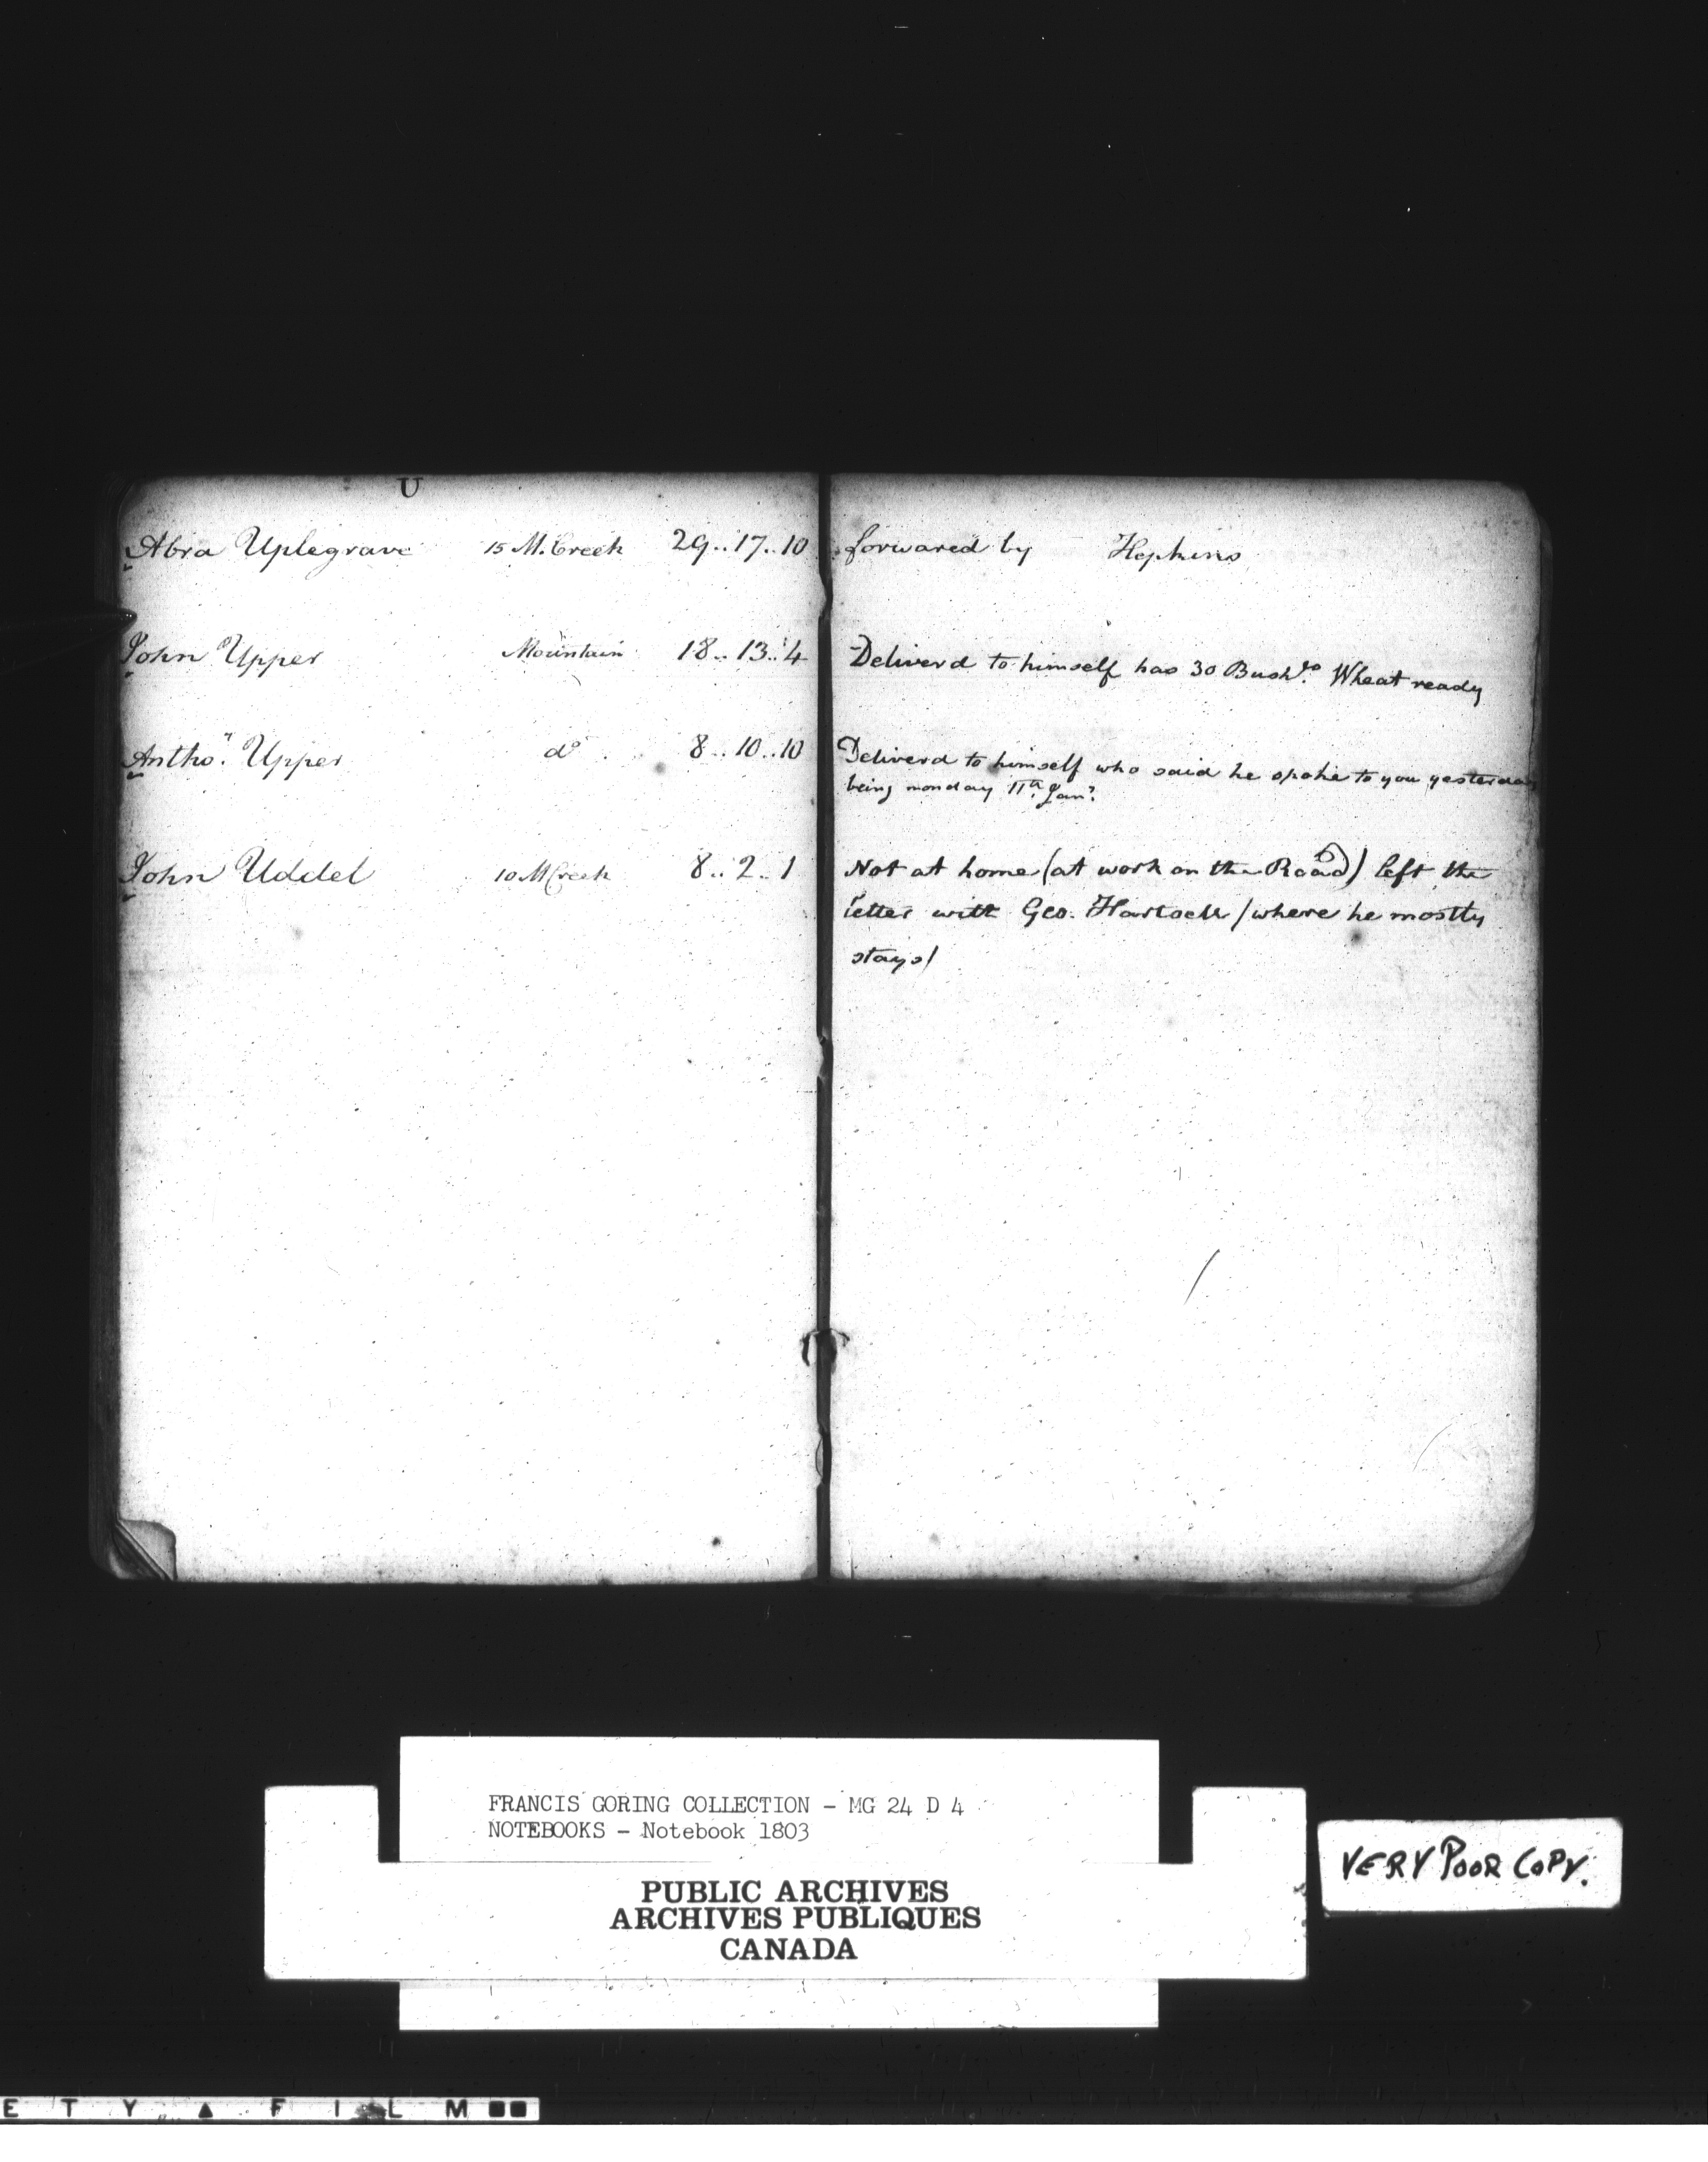 U
Abra Uplegrave 15 M. Creek 29..17..10 forwared by Hopkins
John Upper Mountain 18..13..4 Deliverd to himself has 30 Bushls. Wheat ready
Anthoy. Upper do 8..10..10 Deliverd to himself who said he spoke to you yesterday
being monday 11th Jany.
John Uddel 10 M Creek 8..2..1 Not at home (at work on the Road) left the
letter with Geo. /where he mostly
stays/
FRANCIS GORING COLLECTION - MG 24 D 4
NOTEBOOKS - Notebook 1803
PUBLIC ARCHIVES
ARCHIVES PUBLIQUES
CANADA
VERY POOR COPY.
E T Y ▲ F I L M ■■